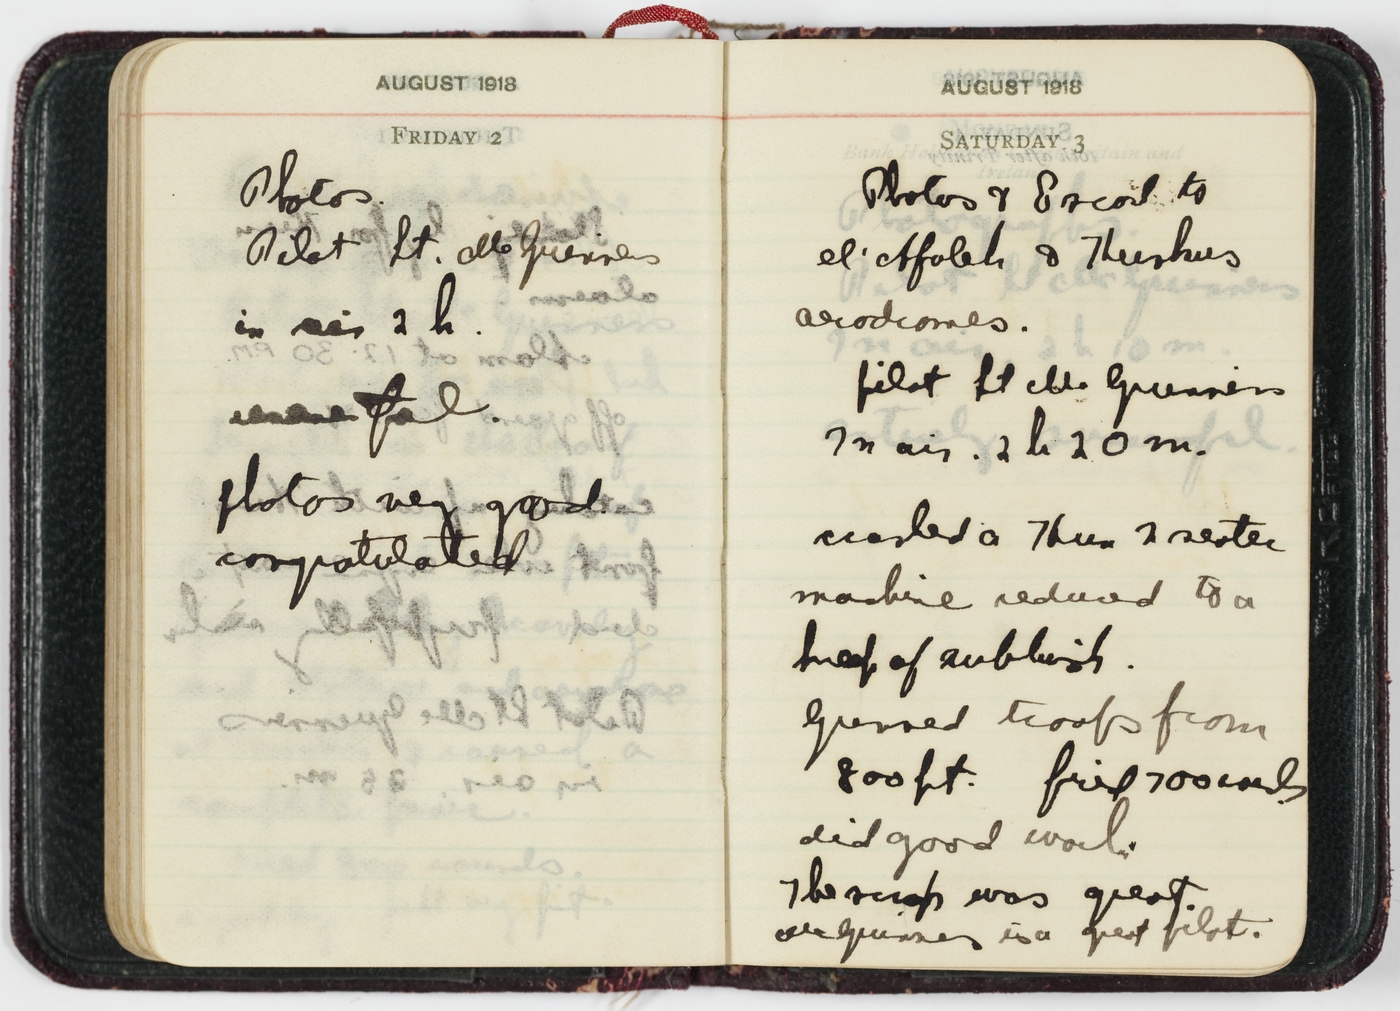 AUGUST 1918
FRIDAY 2
Photos.
Pilot Lt. McGuinness
in air 2 h.
photos very good.
congratulated
AUGUST 1918
SATURDAY 3
Photos & Escort to
el' Affuleh &
aerodromes.
pilot Lt McGuinness
In air. 2 h 20 m.
crashed a Hun 2 seater
machine reduced to a
heap of rubbish.
Gunned troops from
800 ft. fired 700 rounds
did good work.
The scrap was great.
McGuinness is a great pilot.